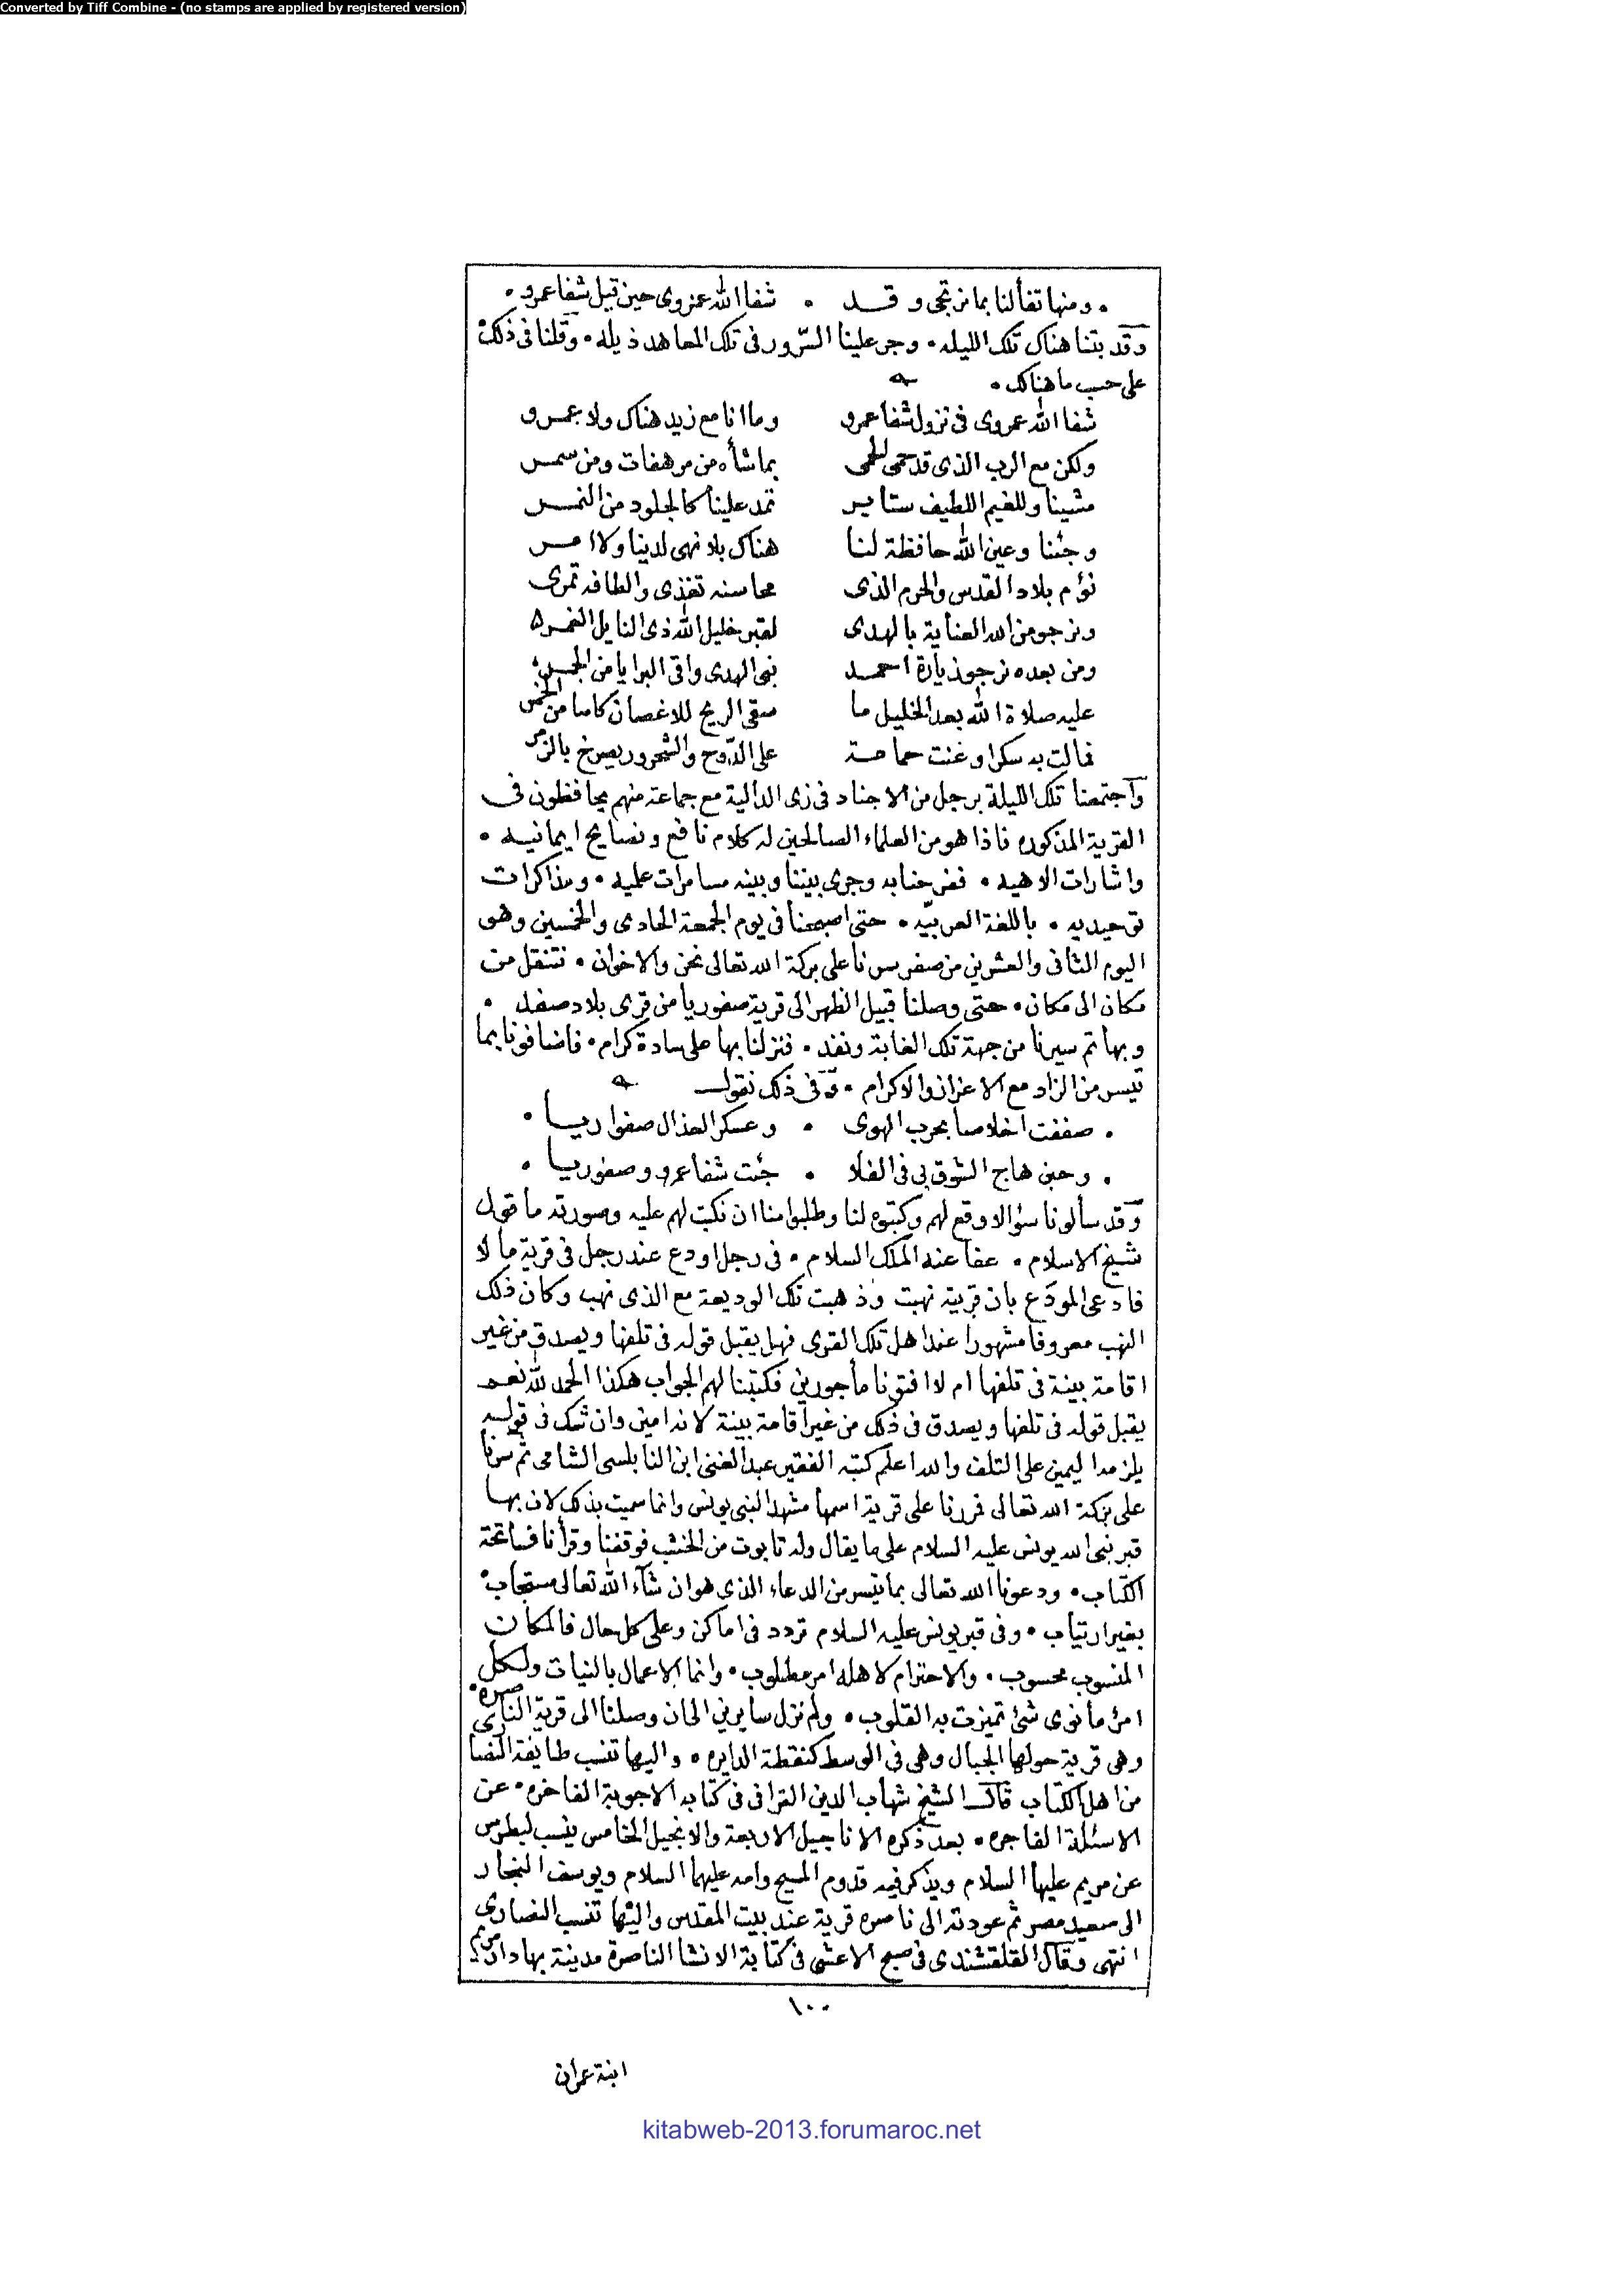 Converted by Tiff Combine - (no stamps are applied by registered version)
• ومنها تفألنا بما نرتجى وقد • شفا الله عمروى حين قبل شفا عمرو •
وقد بتنا هناك تلك الليله • وجر علينا السّرور فى تلك المعاهد ذيله • وقلنا فى ذلك
على حسب ما هنالك •
شفا الله عمروى فى نزول شفا عمرو وما انا مع زيد هناك ولا عمرو
ولكن مع الرب الذى قد حمى الحمى بما شأه من مرهفات ومن سمر
مشينا وللغيم اللطيف ستاير تمد علينا كالجلود من النمر
وجئنا وعين الله حافظة لنا هناك بلا نهى لدينا ولا امر
نؤم بلاد القدس والحرم الذى محاسنه تغذى والطافه تمرى
ونرجو من الله العناية بالهدى لقبر خليل الله ذى النايل الغمر
ومن بعده نرجو زيارة احمد نبى الهدى واقى البرايا من الجمر
عليه صلاة الله بعد الخليل ما سقى الريح للاغصان كاسا من الخمر
فمالت به سكرا وغنت حمامة على الدّوح والشحرور يصرخ بالزمر
وآجتمعنا تلك الليلة برجل من الاجناد فى زى الدالية مع جماعة منهم يحافظون فى
القرية المذكوره فاذا هو من العلماء الصالحين له كلام نافع ونصايح ايمانيه •
واشارات الاهيه • ففرحنا به وجرى بيننا وبينه مسامرات علميه • ومذاكرات
توحيديه • باللغة العربيّه • حتى اصبحنا فى يوم الجمعة الحادى والخمسين وهو
اليوم الثانى والعشرين من صفر سرنا على بركة الله تعالى نحن والاخوان • نتنقل من
مكان الى مكان • حتى وصلنا قبيل الظهر الى قرية صفوريا من قرى بلاد صفد •
وبها تم سيرنا من جهة تلك الغابة ونفد • فنزلنا بها على سادة كرام • فاضافونا بما
تيسر من الزاد مع الاعزاز والاكرام • وفى ذلك نقول
• صففت اخلاصا بحرب الهوى • وعسكر العذال صفوا ريا •
• وحين هاج الشوق بى فى الفلا • جئت شفا عمرو وصفوريا •
وقد سألونا سؤالا وقع لهم وكتبوه لنا وطلبوا منا ان نكتب لهم عليه وصورته ما قول
شيخ الاسلام • عفا عنه الملك السلام • فى رجل اودع عند رجل فى قرية مالا
فادعى المودَع بان قريته نهبت وذهبت تلك الوديعة مع الذى نهب وكان ذلك
النهب معروفا مشهورا عند اهل تلك القرى فهل يقبل قوله فى تلفها ويصدق من غير
اقامة بينة فى تلفها ام لا افتونا مأجورين فكتبنا لهم الجواب هكذا الحمد لله نعم
يقبل قوله فى تلفها ويصدق فى ذلك من غير اقامة بينة لانه امين وان شك فى قوله
يلزمه اليمين على التلف والله اعلم كتبه الفقير عبد الغنى ابن النابلسى الشامى ثم سرنا
على بركة الله تعالى فمررنا على قرية اسمها مشهد النبى يونس وانما سميت بذلك لان بها
قبر نبى الله يونس عليه السلام على ما يقال وله تابوت من الخشب فوقفنا وقرأنا فاتحة
الكتاب • ودعونا الله تعالى بما تيسر من الدعاء الذى هو ان شآء الله تعالى مستجاب •
بغير ارتياب • وفى قبر يونس عليه السلام تردد فى اماكن وعلى كل حال فالمكان
المنسوب محسوب • والاحترام لاهله امر مطلوب • وانما الاعمال بالنيات ولكل
امرئ ما نوى شئ تميزت به القلوب • ولم نزل سايرين الى ان وصلنا الى قرية الناصره •
وهى قرية حولها الجبال وهى فى الوسط كنقطة الدايره • واليها تنسب طايفة النصارى
من اهل الكتاب قال الشيخ شهاب الدين القرافى فى كتابه الاجوبة الفاخره • عن
الاسئلة الفاجره • بعد ذكره الاناجيل الاربعة والانجيل الخامس ينسب لبطرس
عن مريم عليها السلام ويذكر فيه قدوم المسيح وامه عليهما السلام ويوسف النجار
الى سعيد مصر ثم عودته الى ناصره قرية عند بيت المقدس واليها تنسب النصارى
انتهى وقال القلقشندى فى صبح الاعشى فى كتابة الانشا الناصرة مدينة بها دار مريم
١٠٠
ابنة عمران
kitabweb-2013.forumaroc.net